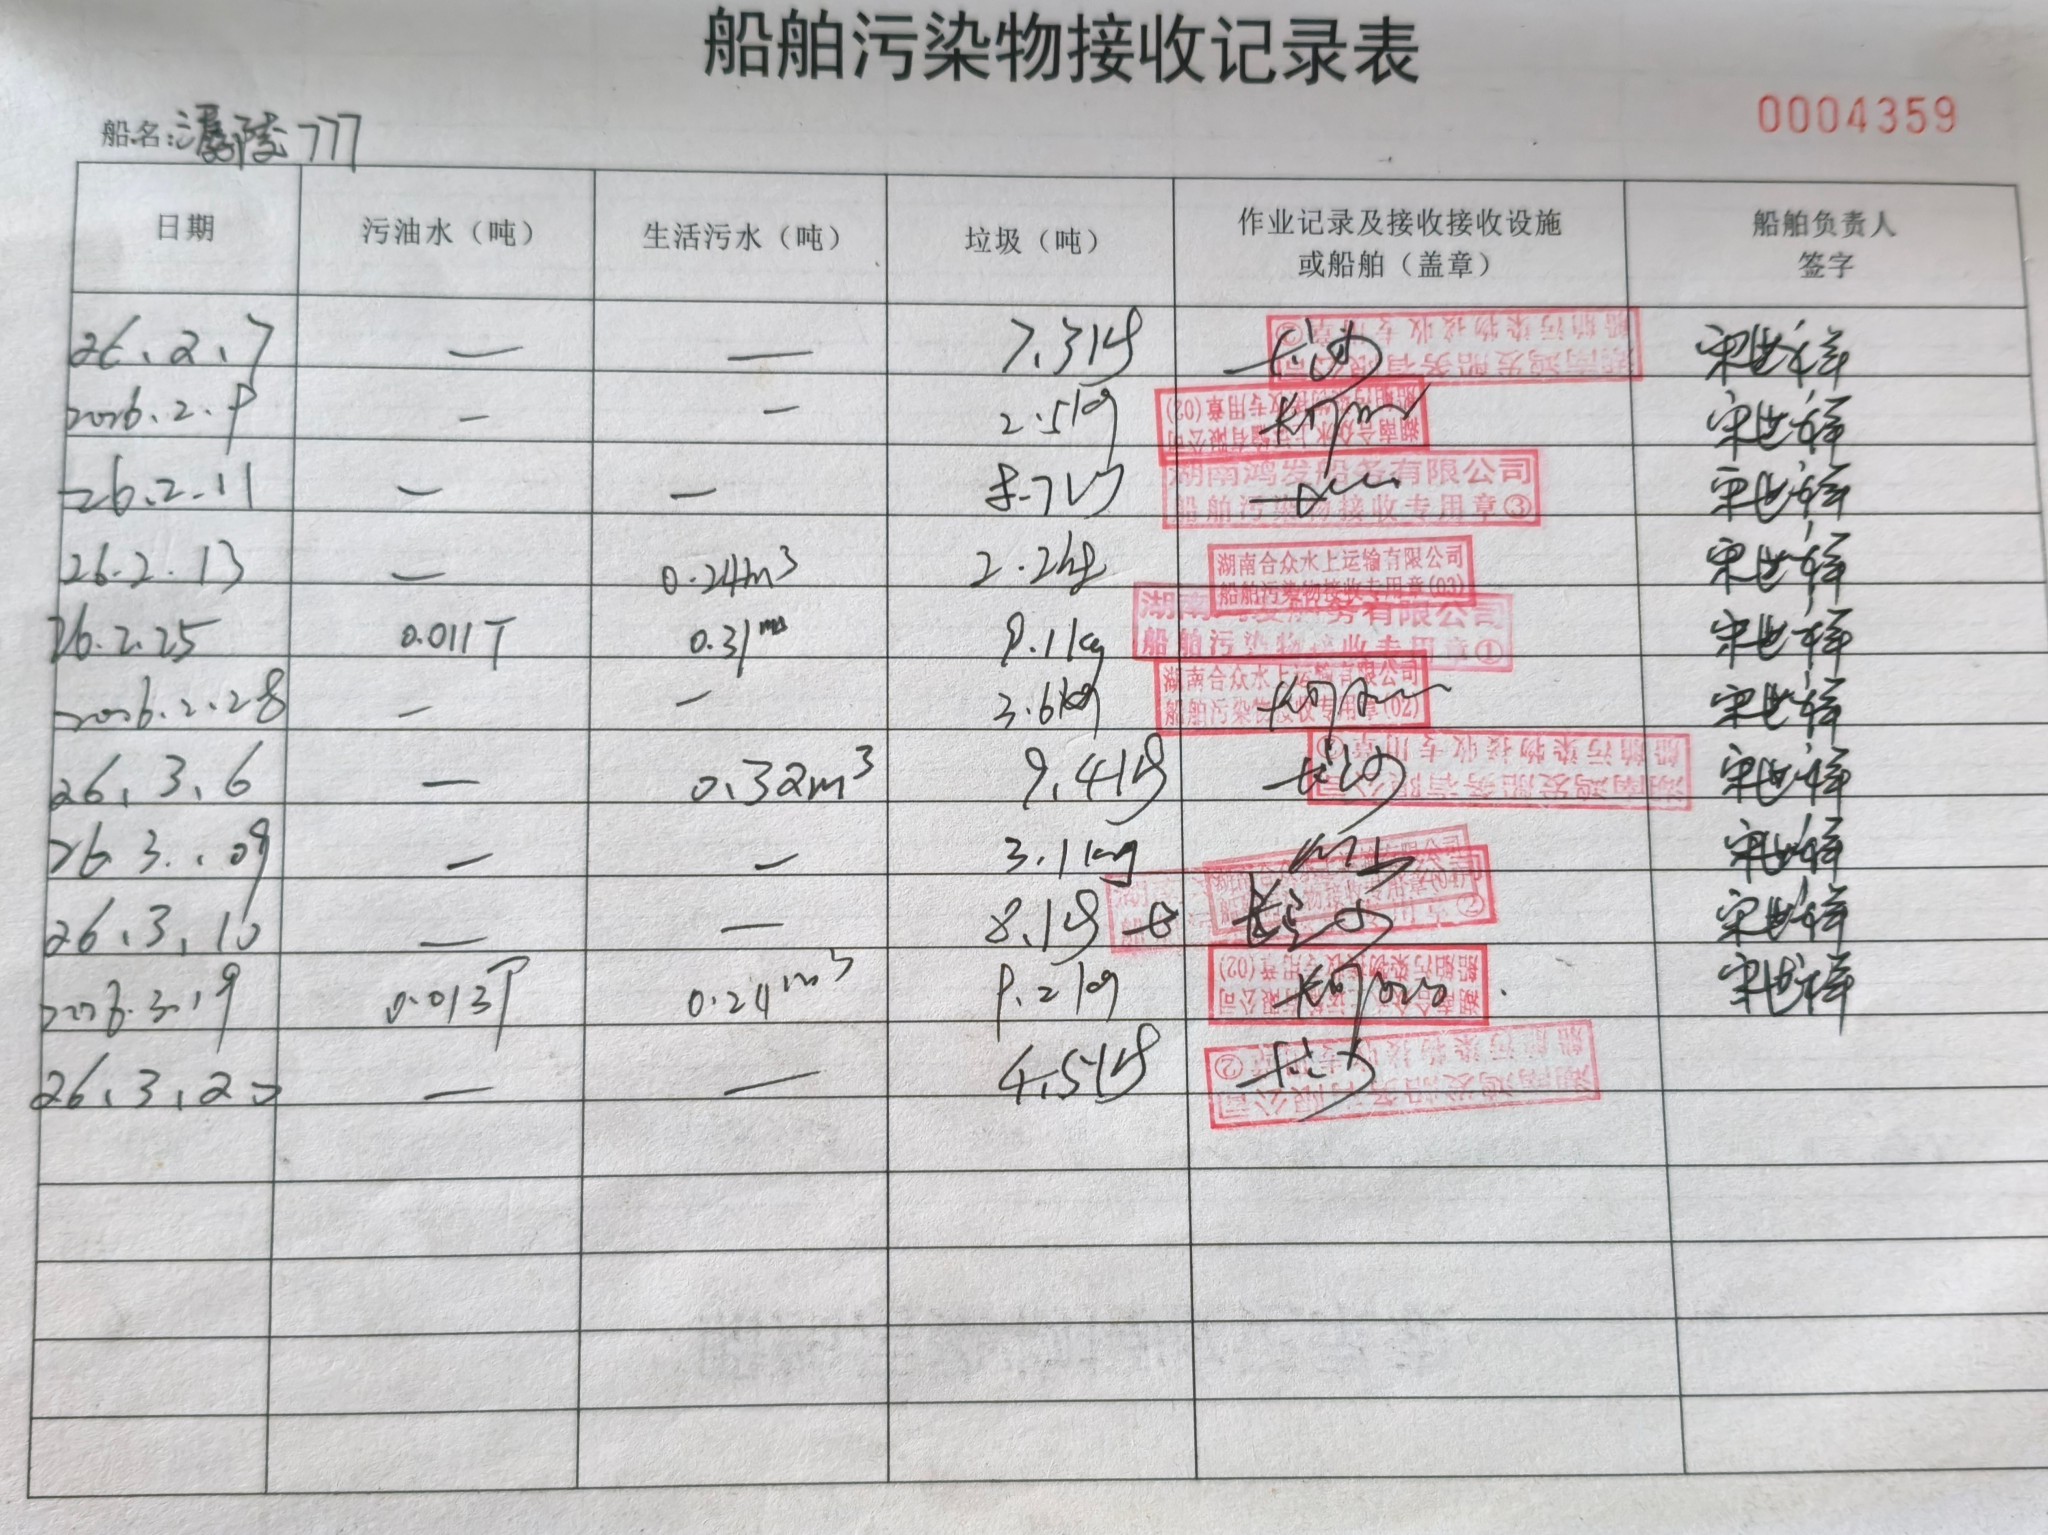 船舶污染物接收记录表
0004359
船名: 陵777
日期 污油水（吨） 生活污水（吨） 垃圾（吨） 作业记录及接收接收设施或船舶（盖章） 船舶负责人签字
26.2.7 — — 7.3kg 长沙 湖南鸿发船务有限公司 船舶污染物接收专用章② 宋世祥
2026.2.9 — — 2.5kg 湖南合众水上运输有限公司 船舶污染物接收专用章(02) 宋世祥
26.2.11 — — 8.7kg 湖南鸿发船务有限公司 船舶污染物接收专用章③ 宋世祥
26.2.13 — 0.24m³ 2.2kg 湖南合众水上运输有限公司 船舶污染物接收专用章(03) 宋世祥
26.2.25 0.011T 0.31m³ 9.1kg 湖南鸿发船务有限公司 船舶污染物接收专用章① 宋世祥
2026.2.28 — — 3.6kg 湖南合众水上运输有限公司 船舶污染物接收专用章(02) 宋世祥
26.3.6 — 0.32m³ 9.4kg 长沙 湖南鸿发船务有限公司 船舶污染物接收专用章 宋世祥
26.3.09 — — 3.1kg 宋世祥
26.3.10 — — 8.1kg 宋世祥
2026.3.19 0.013T 0.24m³ 9.2kg 湖南合众水上运输有限公司 船舶污染物接收专用章(02) 宋世祥
26.3.20 — — 4.5kg 长沙 湖南鸿发船务有限公司 船舶污染物接收专用章②